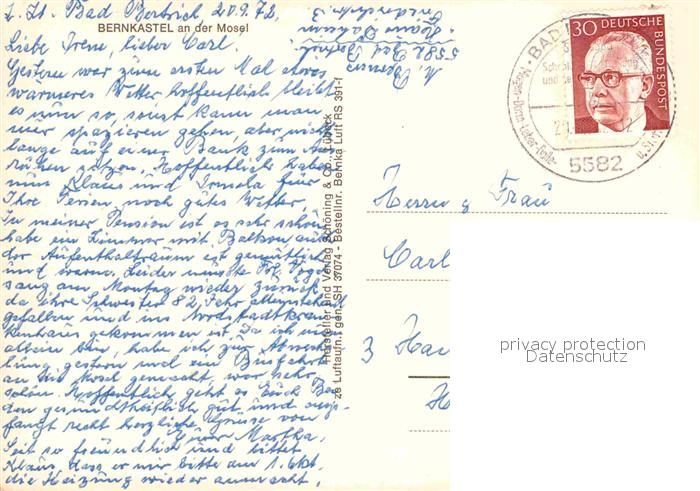 z. Zt. Bad Bertrich 20.9.72
BERNKASTEL an der Mosel
Liebe Irene, lieber Carl.
Gestern war zum ersten Mal etwas
warmeres Wetter hoffentlich bleibt
es nun so, sonst kann man
nur spazieren gehen, aber nicht
lange auf einer Bank zum Aus-
ruhen sitzen. Hoffentlich haben
nun Klaus und Irmela für
Ihre Ferien noch gutes Wetter,
In meiner Pension ist es sehr schön
habe ein Zimmer mit Balkon auch
der Aufenthaltsraum ist gemütlich
und warm. Leider musste Frl. Vogel-
sang am Montag wieder zurück
da ihre Schwester 82 Jahr alleinstehend
gefallen und ins Nordstadtkran-
kenhaus gekommen ist. Da ich nun
allein bin, habe ich zur Abwechs-
lung gestern und ein Busfahrt
an die Mosel gemacht, war sehr
schön. Hoffentlich geht es Euch Bei-
den gesundheitlich gut und emp-
fangt recht herzliche Grüsse von
Eurer Martha,
Seit so freundlich und bittet
Klaus, dass er mir bitte am 1. Okt.
die Heizung wieder anmacht,
5582 Bad
Hersteller und Verlag Schöning & Co., Lübeck
ze Luftaufn. f gen. SH 37074 - Bestellnr. Bernka Luft RS 391-f
30 DEUTSCHE BUNDESPOST
BAD
Magen-Darm-Leber-Galle-
5582
Herrn u Frau
Carl
3 Han
H
privacy protection
Datenschutz